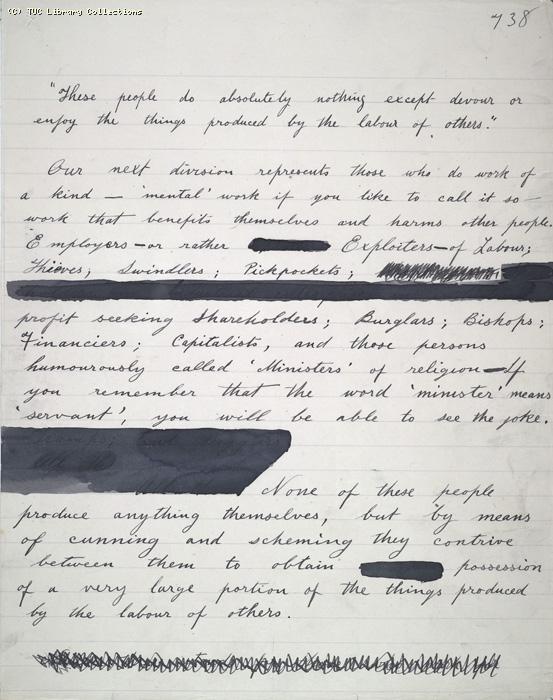 (C) TUC Library Collections
738
"These people do absolutely nothing except devour or
enjoy the things produced by the labour of others."
Our next division represents those who do work of
a kind — 'mental' work if you like to call it so —
work that benefits themselves and harms other people.
Employers — or rather Exploiters — of Labour;
Thieves; Swindlers; Pickpockets;
profit seeking Shareholders; Burglars; Bishops;
Financiers; Capitalists, and those persons
humourously called 'Ministers' of religion — If
you remember that the word 'minister' means
'servant', you will be able to see the joke.
None of these people
produce anything themselves, but by means
of cunning and scheming they contrive
between them to obtain possession
of a very large portion of the things produced
by the labour of others.